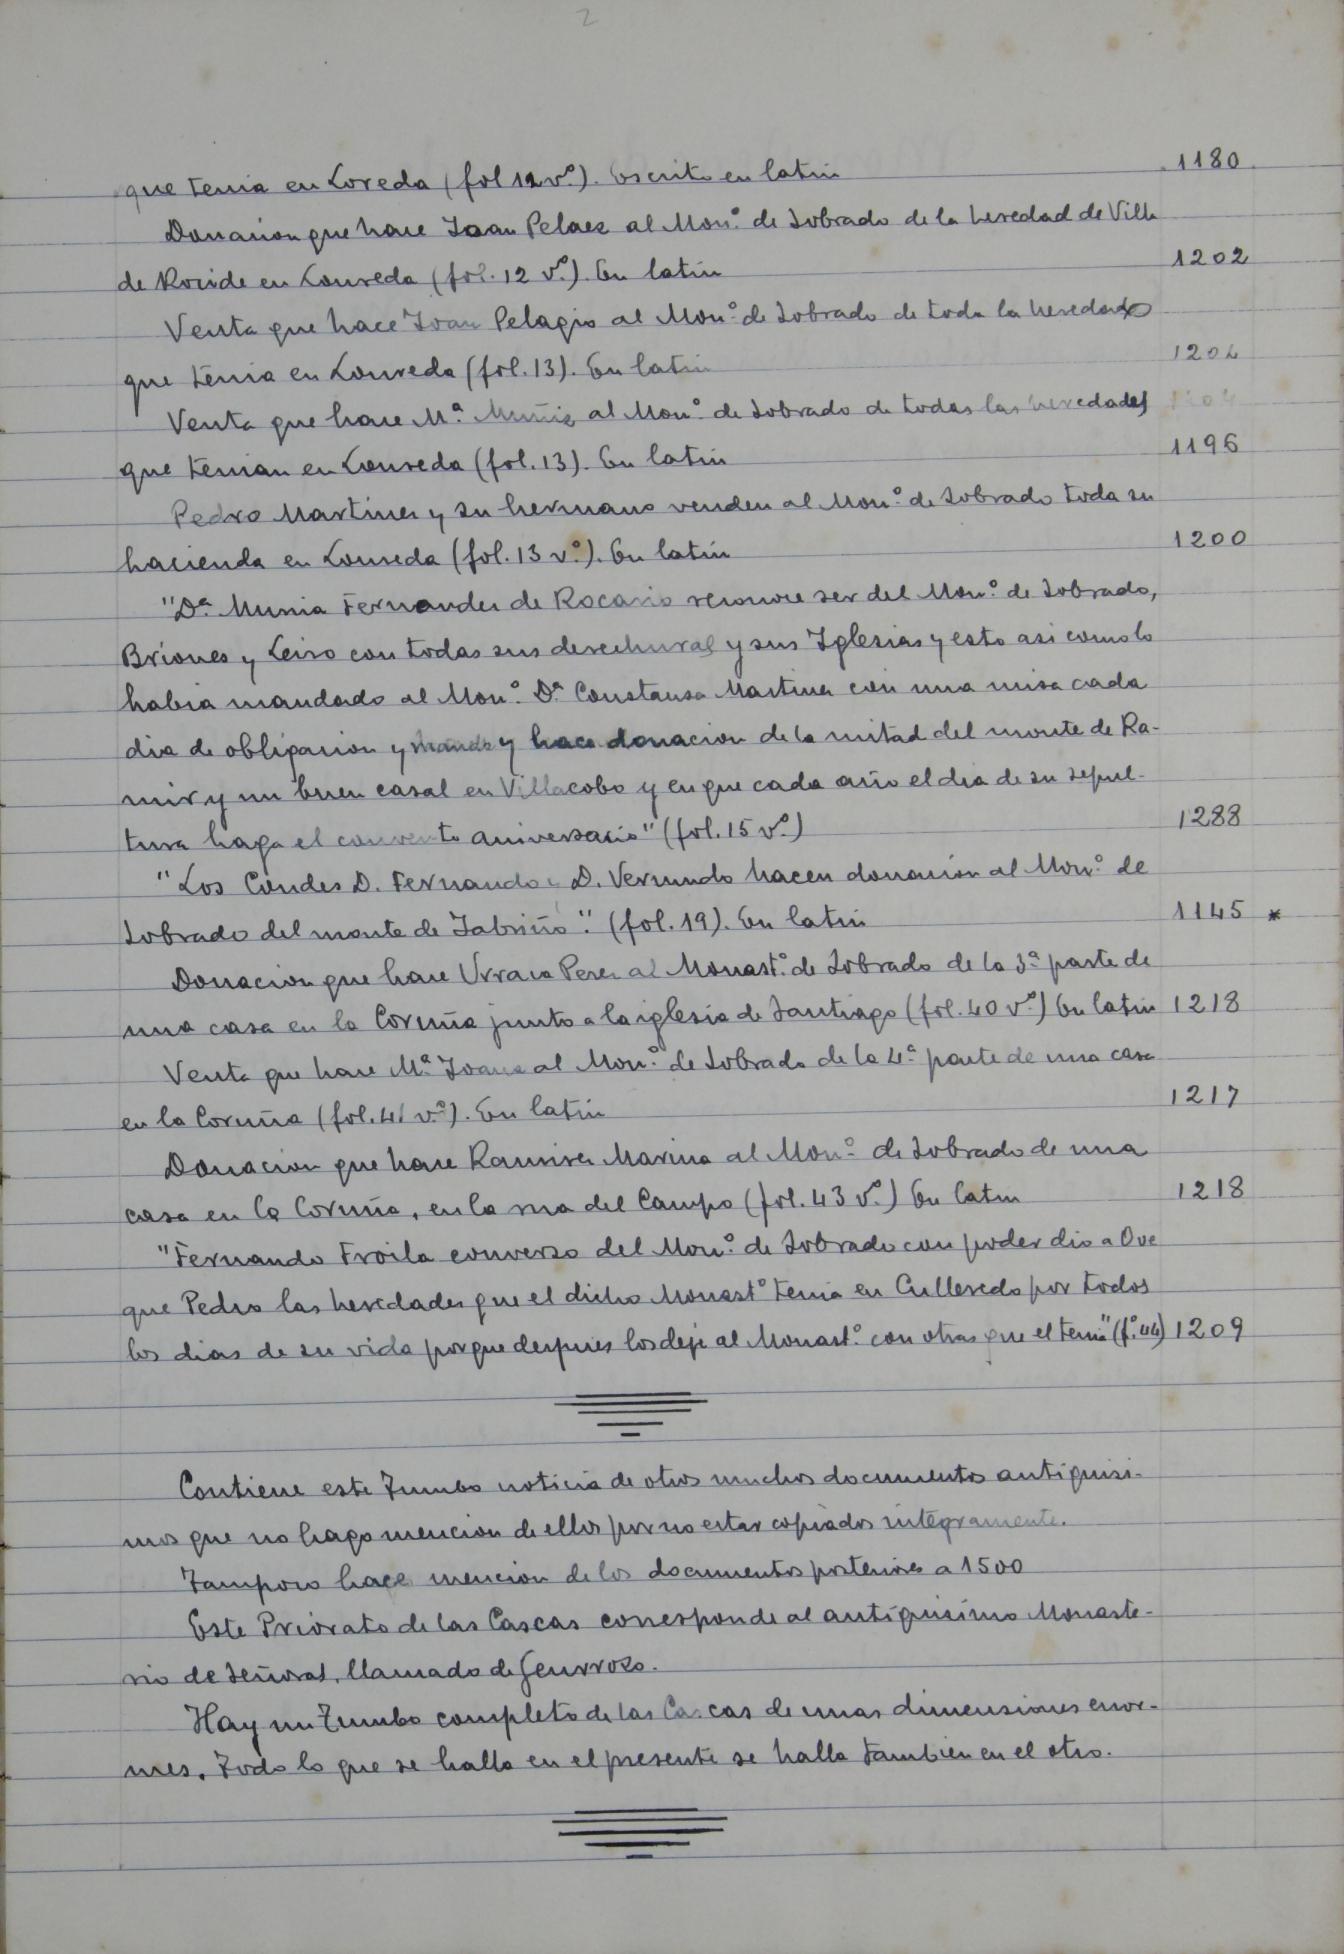 2
que tenia en Loreda (fol 12 vº). Escrito en latin 1180
Donacion que hace Joan Pelaez al Monº de Sobrado de la heredad de Villa
de Roside en Loureda (fol. 12 vº). En latin 1202
Venta que hace Joan Pelagio al Monº de Sobrado de toda la heredad
que tenia en Loureda (fol. 13). En latin 1204
Venta que hace Mª Muñiz al Monº de Sobrado de todas las heredades
que tenian en Loureda (fol. 13). En latin 1196
Pedro Martinez y su hermano venden al Monº de Sobrado toda su
hacienda en Loureda (fol. 13 vº). En latin 1200
"Dª Munia Fernandez de Rocario reconoce ser del Monº de Sobrado,
Briones y Leiro con todas sus derechuras y sus Iglesias y esto asi como lo
habia mandado al Monº Dª Constansa Martinez con una misa cada
dia de obligacion y manda y hace donacion de la mitad del monte de Ra-
mir y un buen casal en Villacobo y en que cada año el dia de su sepul-
tura haga el convento aniversario" (fol. 15 vº) 1288
"Los Condes D. Fernando y D. Vermudo hacen donacion al Monº de
Sobrado del monte de Tabriño". (fol. 19). En latin 1145 *
Donacion que hace Urraca Perez al Monastº de Sobrado de la 3ª parte de
una casa en la Coruña junto a la iglesia de Santiago (fol. 40 vº) En latin 1218
Venta que hace Mª Joanes al Monº de Sobrado de la 4ª parte de una casa
en la Coruña (fol. 41 vº). En latin 1217
Donacion que hace Ramirez Marina al Monº de Sobrado de una
casa en la Coruña, en la rua del Campo (fol. 43 vº) En latin 1218
"Fernando Froila converso del Monº de Sobrado con poder dio a Ove
que Pedro las heredades que el dicho Monastº tenia en Culleredo por todos
los dias de su vida porque despues los deje al Monastº con otras que el tenia" (fº 44) 1209
Contiene este Tumbo noticia de otros muchos documentos antiquisi-
mos que no hago mencion de ellos por no estar copiados integramente.
Tampoco hace mencion de los documentos posteriores a 1500
Este Priorato de las Cascas corresponde al antiquisimo Monaste-
rio de Señoras, llamado de Genrrozo.
Hay un Tumbo completo de las Cascas de unas dimensiones enor-
mes. Todo lo que se halla en el presente se halla tambien en el otro.